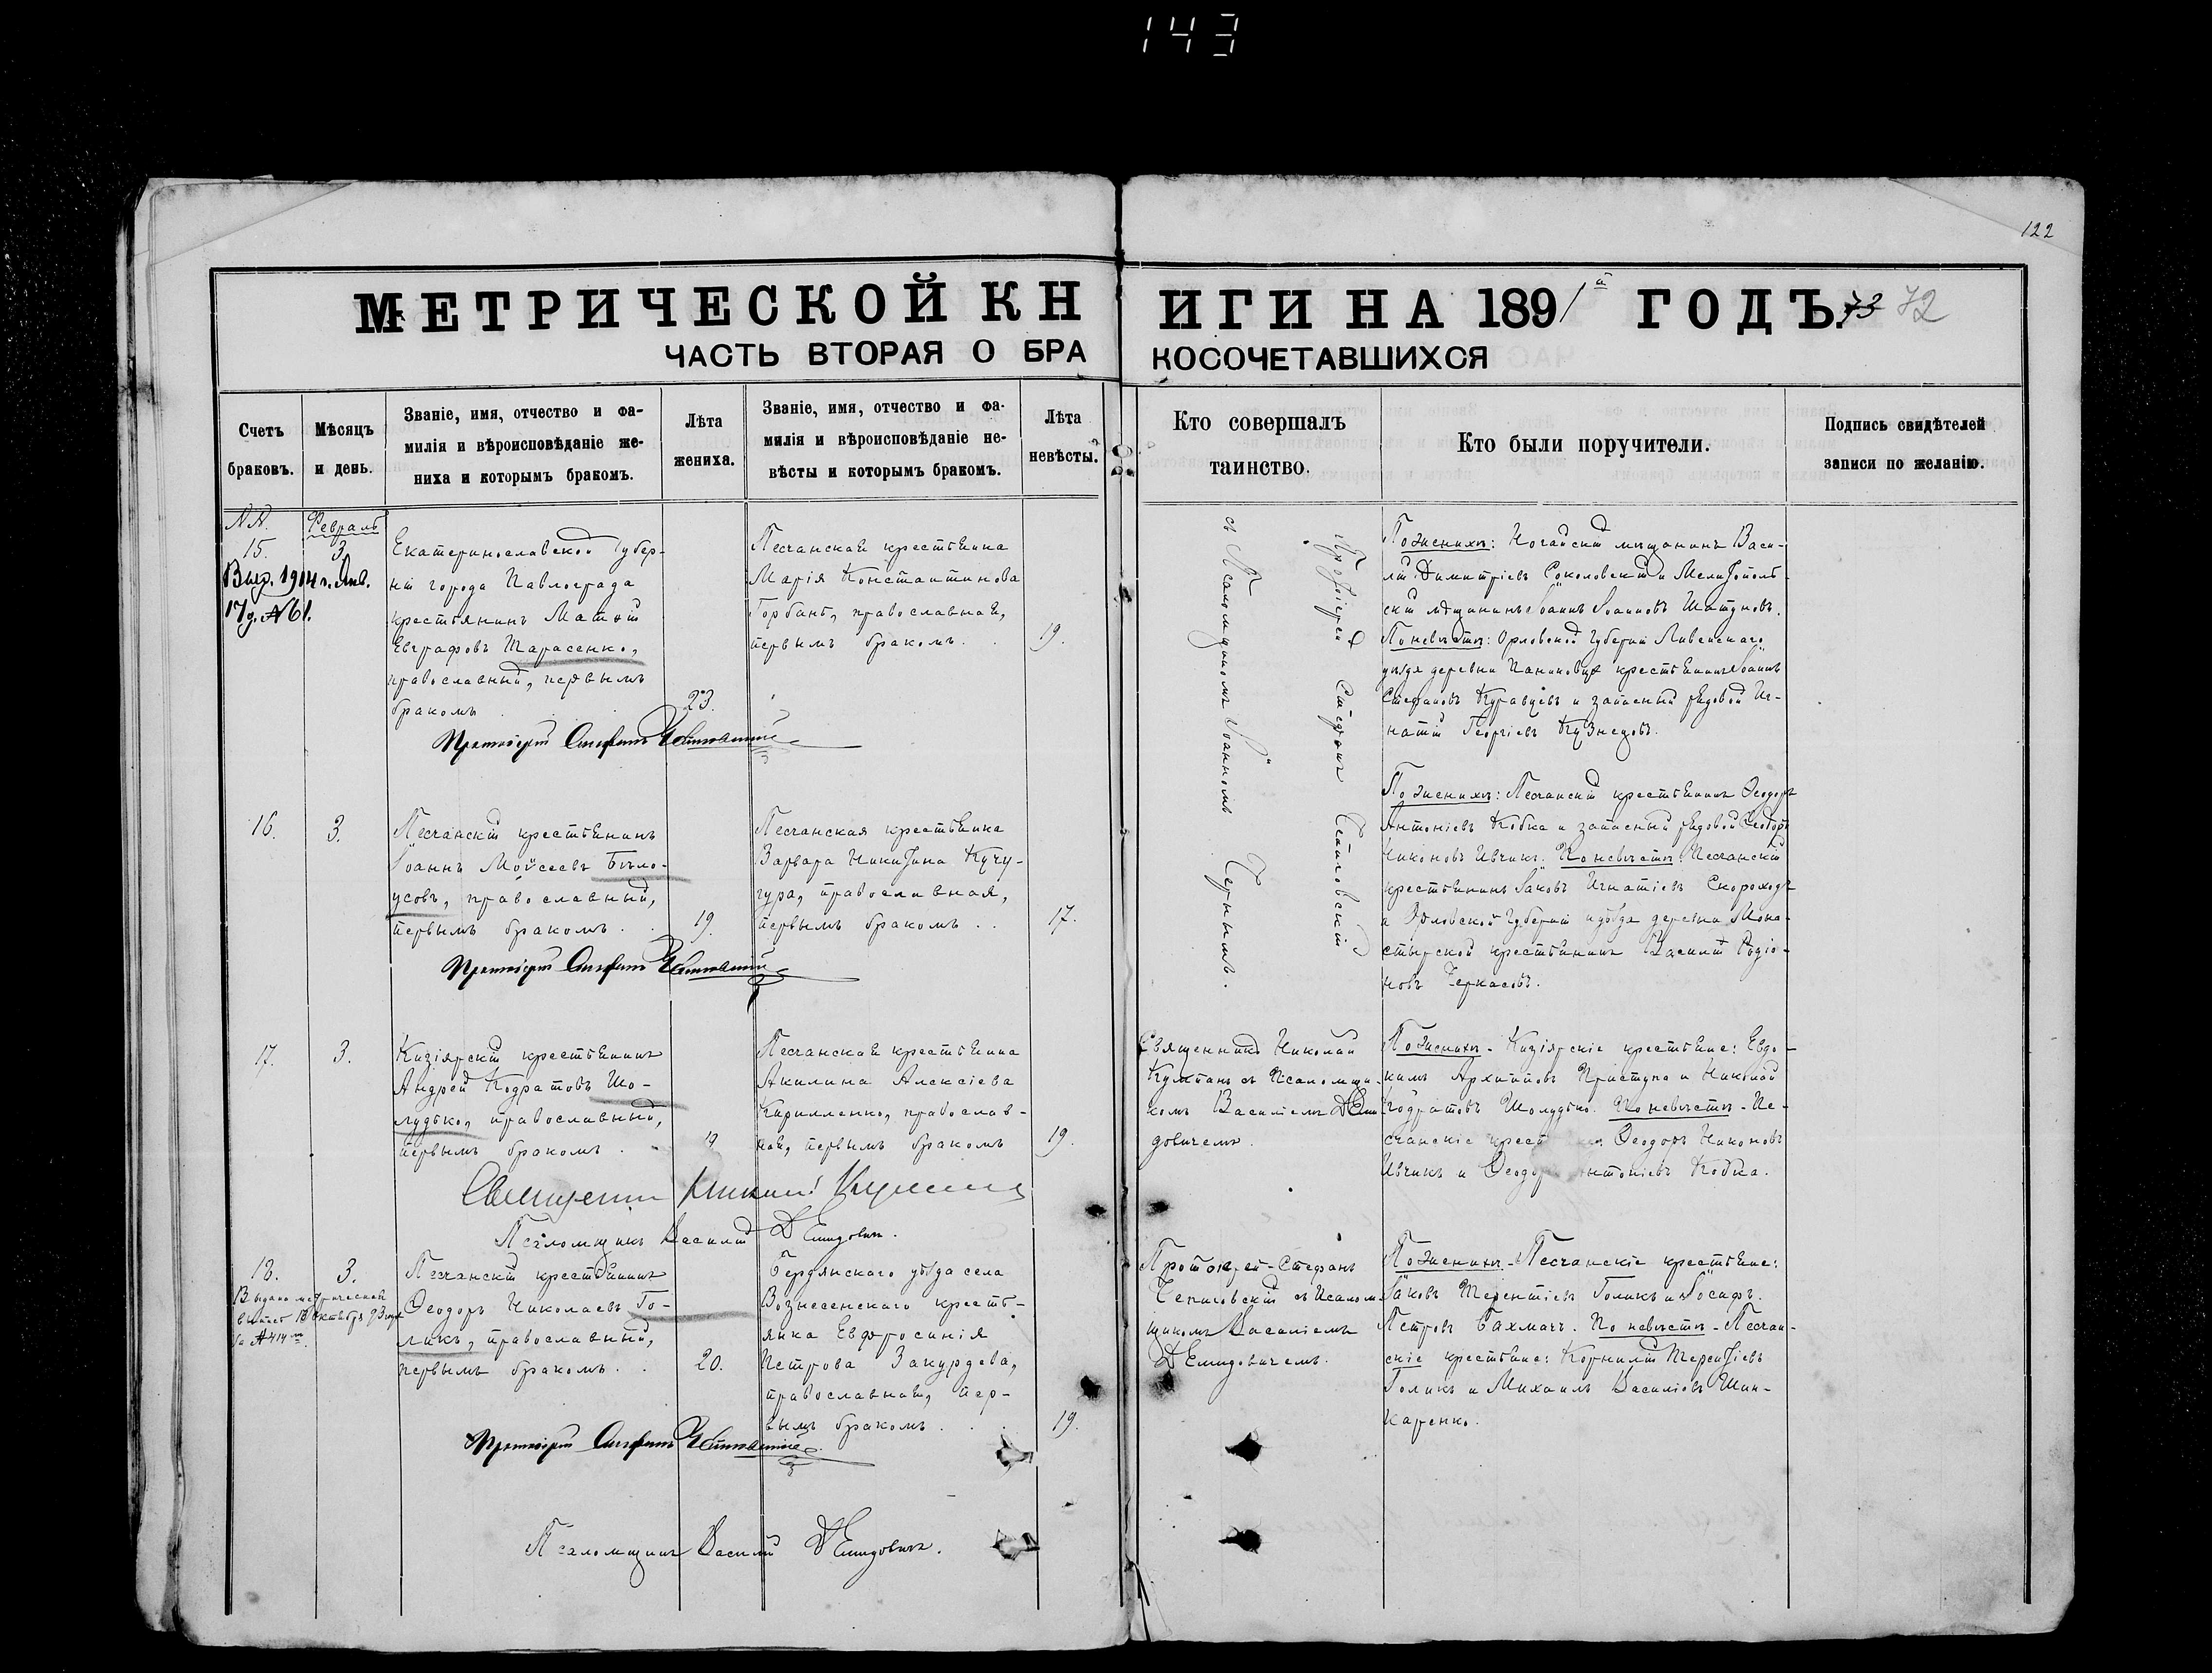 143
122
МЕТРИЧЕСКОЙ КН
ИГИ НА 1891й ГОДЪ.
73 72
ЧАСТЬ ВТОРАЯ О БРА
КОСОЧЕТАВШИХСЯ
Счетъ
браковъ.
Мѣсяцъ
и день.
Званіе, имя, отчество и фа-
милія и вѣроисповѣданіе же-
ниха и которымъ бракомъ.
Лѣта
жениха.
Званіе, имя, отчество и фа-
милія и вѣроисповѣданіе не-
вѣсты и которымъ бракомъ.
Лѣта
невѣсты.
Кто совершалъ
таинство.
Кто были поручители.
Подпись свидѣтелей
записи по желанію.
NN.
Февраль
15.
3
Выд. 1914 г. Янв.
17 д. № 61.
Екатеринославской Губер-
ніи города Павлограда
крестьянинъ Матѳій
Евграфовъ Тарасенко,
православный, первымъ
бракомъ
23.
Песчанская крестьянка
Марія Константинова
Горбань, православная,
первымъ бракомъ.
19.
Протоіерей Стефанъ
Протоіерей Стефанъ
съ Псаломщикомъ Іоанномъ Чернымъ.
По женихѣ: Ногайскій мѣщанинъ Васи-
лій Димитріевъ Соколовскій и Мелитополь-
скій мѣщанинъ Іоаннъ Іоанновъ Шатуновъ.
По невѣстѣ: Орловской Губерніи Ливенскаго
уѣзда деревни крестьянинъ Іоаннъ
Стефановъ и запасный рядовой Иг-
натій Георгіевъ Кузнецовъ.
16.
3.
Песчанскій крестьянинъ
Іоаннъ Моѵсеевъ Бѣло-
усовъ, православный,
первымъ бракомъ.
19.
Песчанская крестьянка
Варвара Никитина Кучу-
гура, православная,
первымъ бракомъ.
17.
Протоіерей Стефанъ
По женихѣ: Песчанскій крестьянинъ Ѳеодоръ
Антоніевъ Кобка и запасный рядовой Ѳеодоръ
Никоновъ Ивчикъ. По невѣстѣ: Песчанскій
крестьянинъ Іаковъ Игнатіевъ Скороходъ
и Орловской Губерніи и уѣзда деревни Мона-
стырской крестьянинъ Василій Родіо-
новъ Черкасовъ.
17.
3.
Кизіярскій крестьянинъ
Андрей Кодратовъ Шо-
лудько, православный,
первымъ бракомъ.
19
Песчанская крестьянка
Акилина Алексіева
Кирилленко, православ-
ная, первымъ бракомъ
19.
Священникъ Николай
съ Псаломщи-
комъ Василіемъ Деми-
довичемъ.
По женихѣ - Кизіярскіе крестьяне: Евдо-
кимъ Архиповъ Приступа и Николай
Кодратовъ Шолудько. По невѣстѣ - Пе-
счанскіе крест Ѳеодоръ Никоновъ
Ивчикъ и Ѳеодоръ Антоніевъ Кобка.
Священникъ Николай
Псаломщикъ Василій Демидовичъ.
18.
3.
Выдана метрическая
за № 414 м
Песчанскій крестьянинъ
Ѳеодоръ Николаевъ Го-
ликъ, православный,
первымъ бракомъ.
20.
Бердянскаго уѣзда села
Вознесенскаго кресть-
янка Евфросинія
Петрова Закурдева,
православная, пер-
вымъ бракомъ
19.
Протоіерей Стефанъ
съ Псалом-
щикомъ Василіемъ
Демидовичемъ.
По женихѣ - Песчанскіе крестьяне:
Іаковъ Терентіевъ Голикъ и Іосифъ
Петровъ Бахмачъ. По невѣстѣ - Песчан-
скіе крестьяне: Корнилій Терентіевъ
Голикъ и Михаилъ Василіевъ Шин-
каренко.
Протоіерей Стефанъ
Псаломщикъ Василій Демидовичъ.